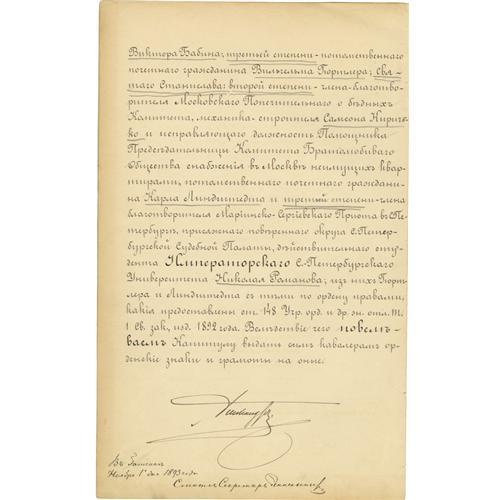 Виктора Бабина; третьей степени - потомственнаго
почетнаго гражданина Вильгельма Гюртлера; Свя-
таго Станислава: второй степени - члена-благотво-
рителя Московскаго Попечительнаго о бѣдныхъ
Комитета, механика-строителя Самсона Киричен-
ко и исправляющаго должность Помощника
Предсѣдательницы Комитета Братолюбиваго
Общества снабженія въ Москвѣ неимущихъ квар-
тирами, потомственнаго почетнаго граждани-
на Карла Линдштедта и третьей степени - члена
благотворителя Маріинско-Сергіевскаго Пріюта въ С.Пе-
тербургѣ, присяжнаго повѣреннаго округа С.Петер-
бургской Судебной Палаты, дѣйствительнаго сту-
дента Императорскаго С.-Петербургскаго
Университета Николая Романова; изъ нихъ Гюрт-
лера и Линдштедта съ тѣми по ордену правами,
какія предоставлены ст. 148 Учр. орд. и др. зн. отл. т.
1 Св. зак., изд. 1892 года. Вслѣдствіе чего повелѣ-
ваемъ Капитулу выдать симъ кавалерамъ ор-
денскіе знаки и грамоты на оные.
Въ Гатчинѣ
Ноября 1 дня 1893 года
Статсъ-Секретарь